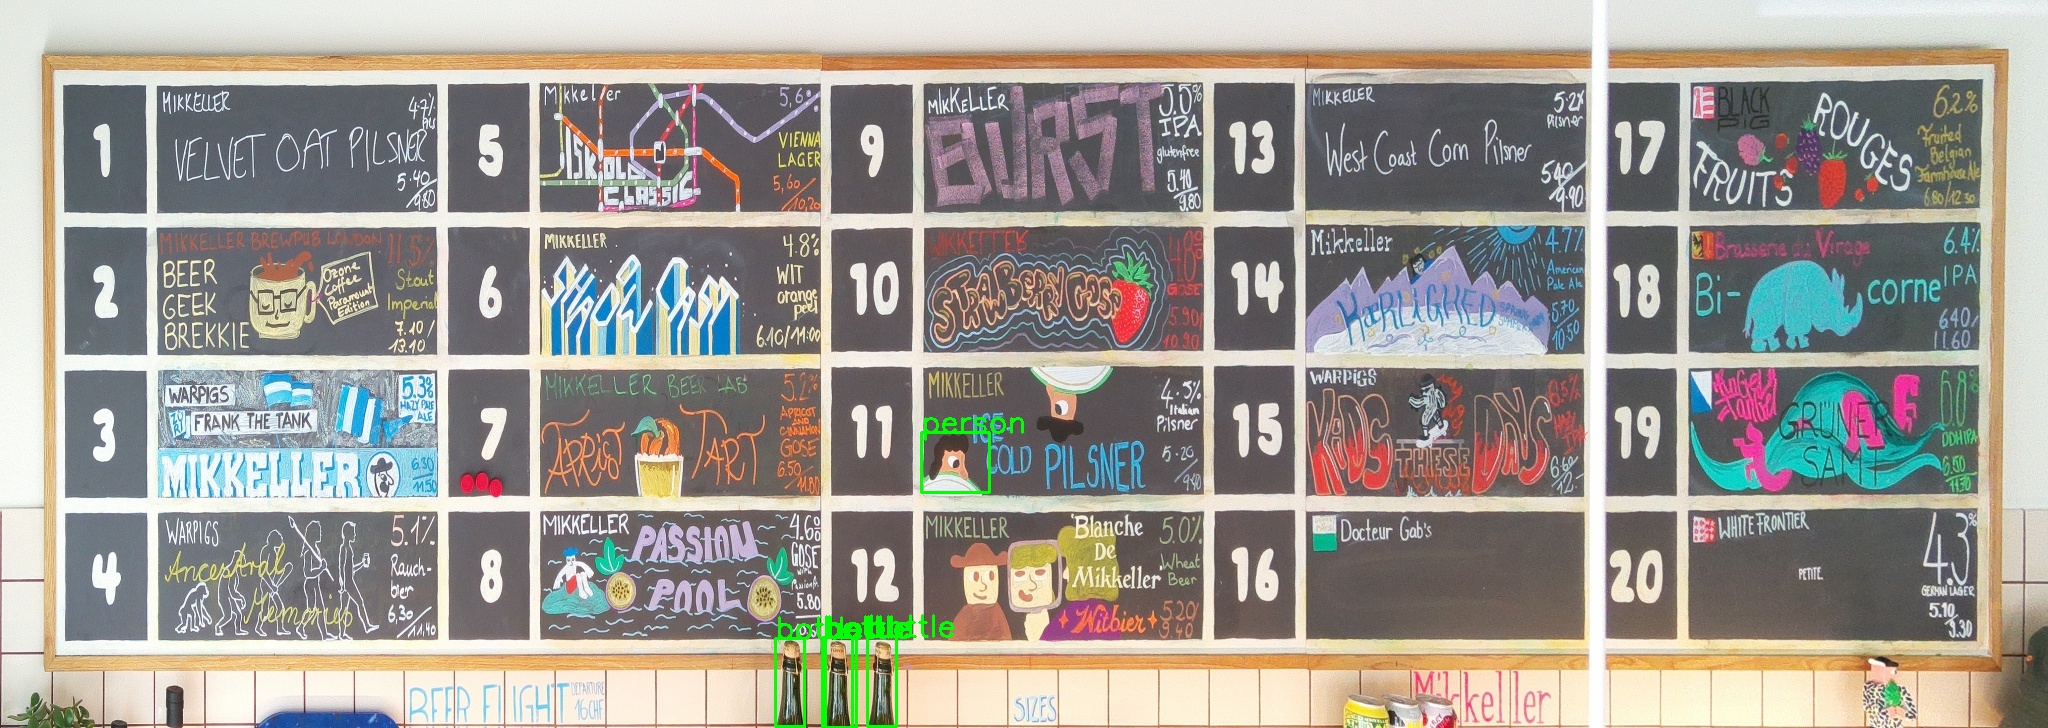 1
MIKKELLER
4.7%
Pils
VELVET OAT PILSNER
5.40
9.80
2
MIKKELLER BREWPUB LONDON
11.5%
BEER
GEEK
BREKKIE
Ozone
Coffee
Paramount
Edition
Stout
Imperial
7.10/
13.10
3
WARPIGS
FRANK THE TANK
5.3%
HAZY PALE
ALE
MIKKELLER
6.30
11.50
4
WARPIGS
5.1%
Ancestral
Memories
Rauch-
bier
6.30/
11.40
5
Mikkeller
5,6%
ISKOLD
CLASSIC
VIENNA
LAGER
5,60/
10,20
6
MIKKELLER
4.8%
WIT
orange
peel
6.10/11:00
7
MIKKELLER BEER LAB
5.2%
APRICOT
AND
CINNAMON
GOSE
TART
6.50/
11.80
8
MIKKELLER
4.6%
GOSE
PASSION
POOL
5.80
9
MIKKELLER
5.5%
IPA
BURST
glutenfree
5.40
9.80
10
MIKKELLER
4.8%
GOSE
STRAWBERRY GOSE
5.90/
10.90
11
MIKKELLER
4.5%
Italian
Pilsner
ICE
COLD PILSNER
5.20
9.40
12
MIKKELLER
Blanche
De
Mikkeller
5.0%
Wheat
Beer
Witbier
5.20
9.40
13
MIKKELLER
5.2%
Pilsner
West Coast Corn Pilsner
5.40
9.90
14
Mikkeller
4.7%
American
Pale Ale
KÆRLIGHED
5.70
10.50
15
WARPIGS
6.5%
KIDS
THESE
DAYS
6.60
12.-
16
Docteur Gab's
17
BLACK
PIG
6.2%
ROUGES
FRUITS
Fruited
Belgian
Farmhouse Ale
6.80/12.30
18
Brasserie du Virage
6.4%
IPA
Bi-
corne
6.40/
11.60
19
6.8%
DDH IPA
GRÜNER
SAMT
6.50
11.70
20
WHITE FRONTIER
4.3%
PETITE.
GERMAN LAGER
5.10
9.30
person
bottle
bottle
bottle
BEER FLIGHT
DEPARTURE
16 CHF
SIZES
Mikkeller